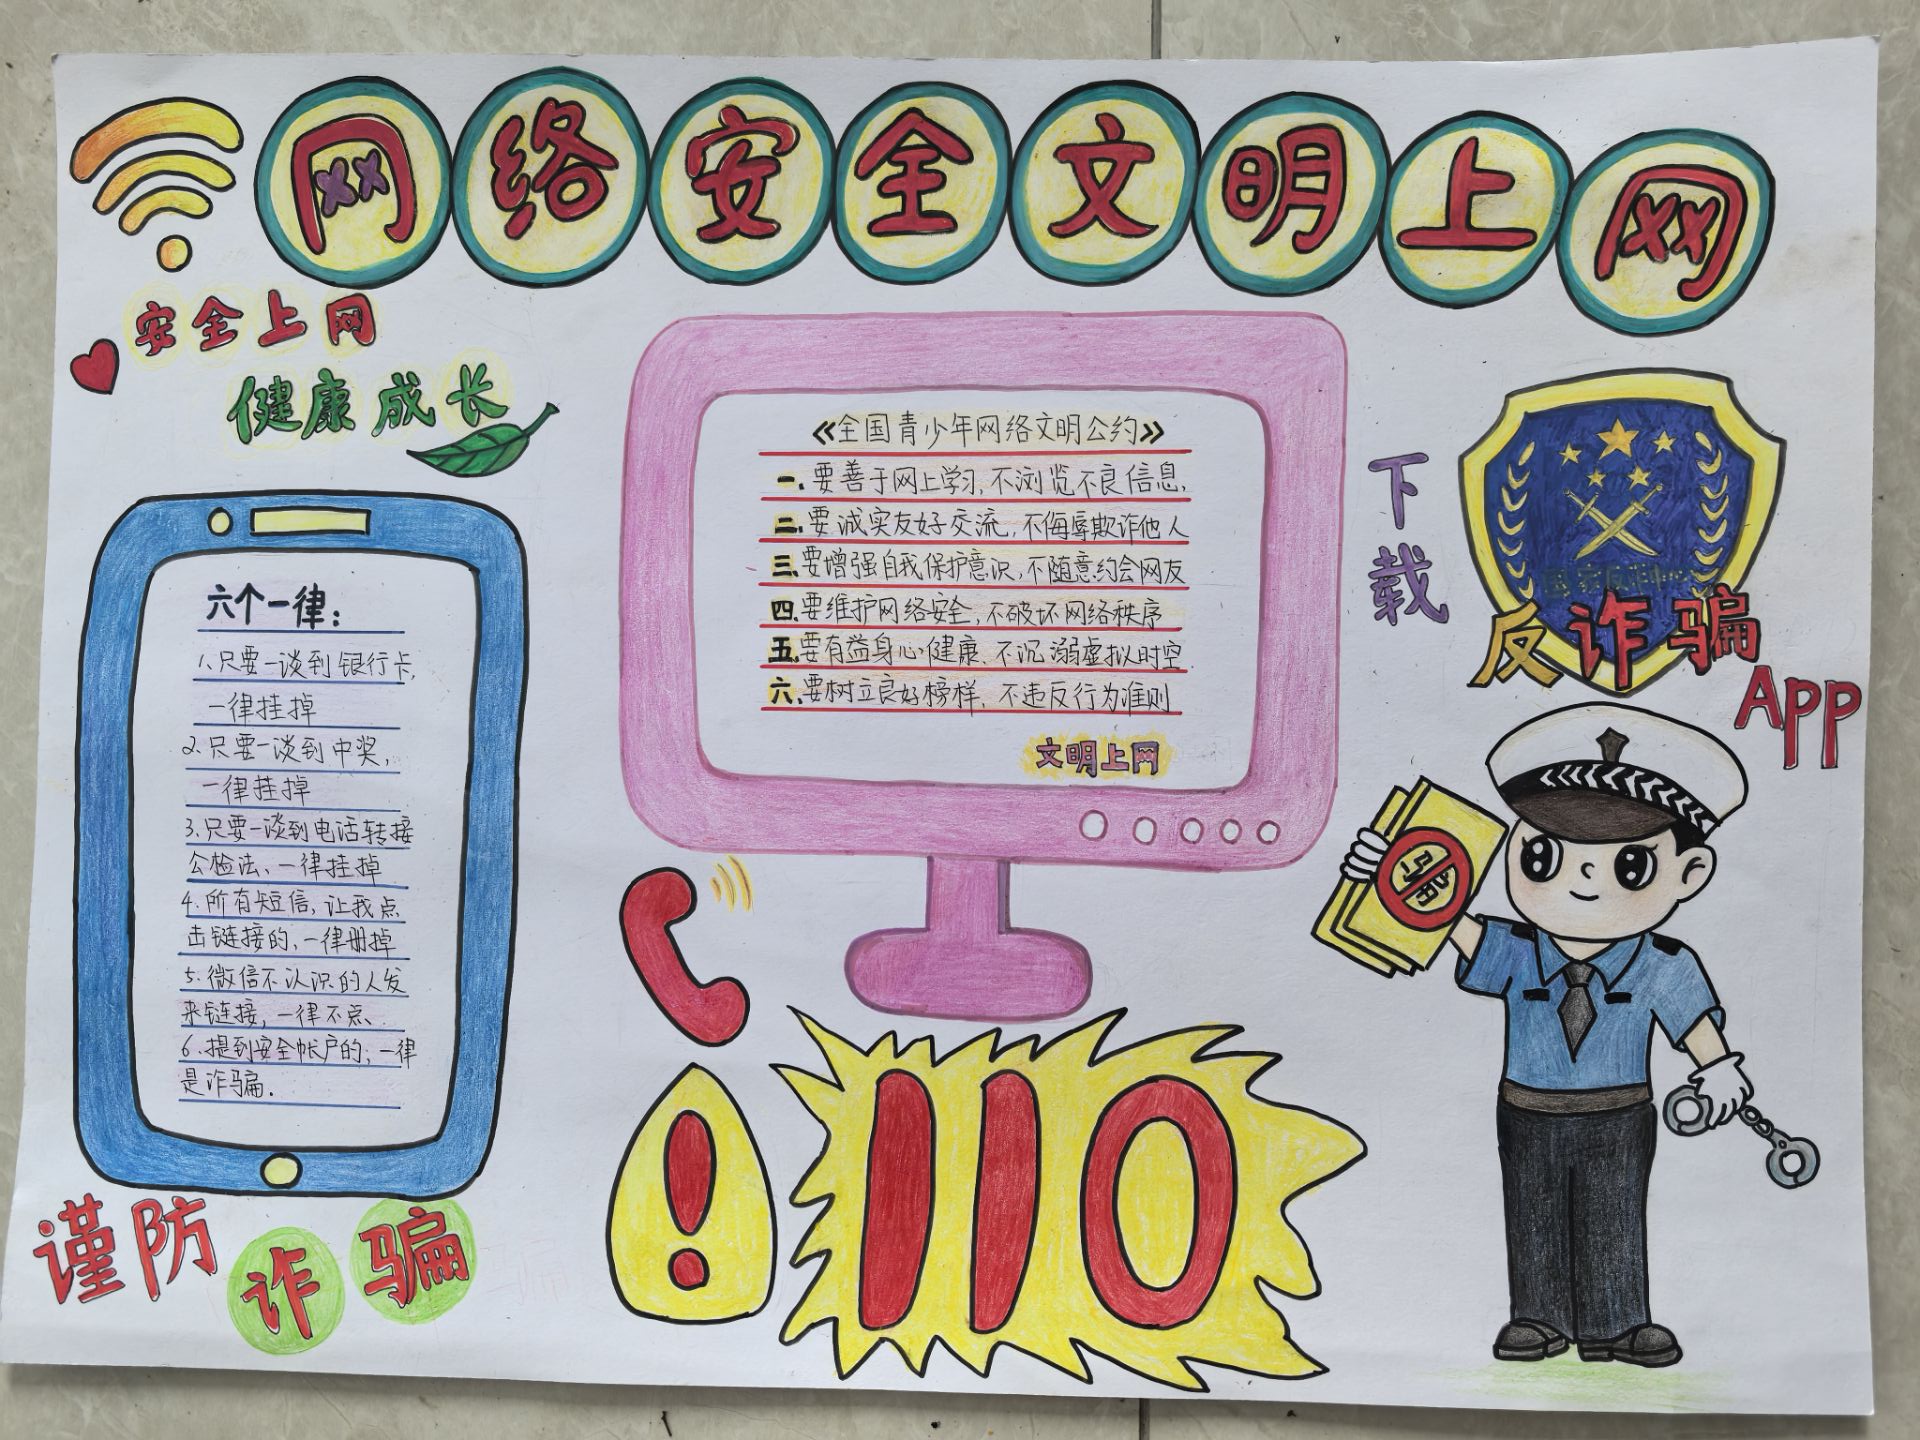 网络安全文明上网
安全上网
健康成长
六个一律：
1、只要一谈到银行卡，
一律挂掉
2、只要一谈到中奖，
一律挂掉
3、只要一谈到电话转接
公检法、一律挂掉
4、所有短信，让我点
击链接的，一律删掉
5、微信不认识的人发
来链接，一律不点、
6、提到安全帐户的，一律
是诈骗．
谨防
诈骗
《全国青少年网络文明公约》
一、要善于网上学习，不浏览不良信息、
二、要诚实友好交流，不侮辱欺诈他人
三、要增强自我保护意识，不随意约会网友
四、要维护网络安全，不破坏网络秩序
五、要有益身心健康、不沉溺虚拟时空
六、要树立良好榜样，不违反行为准则
文明上网
！110
下载
国家反诈中心
反诈骗
App